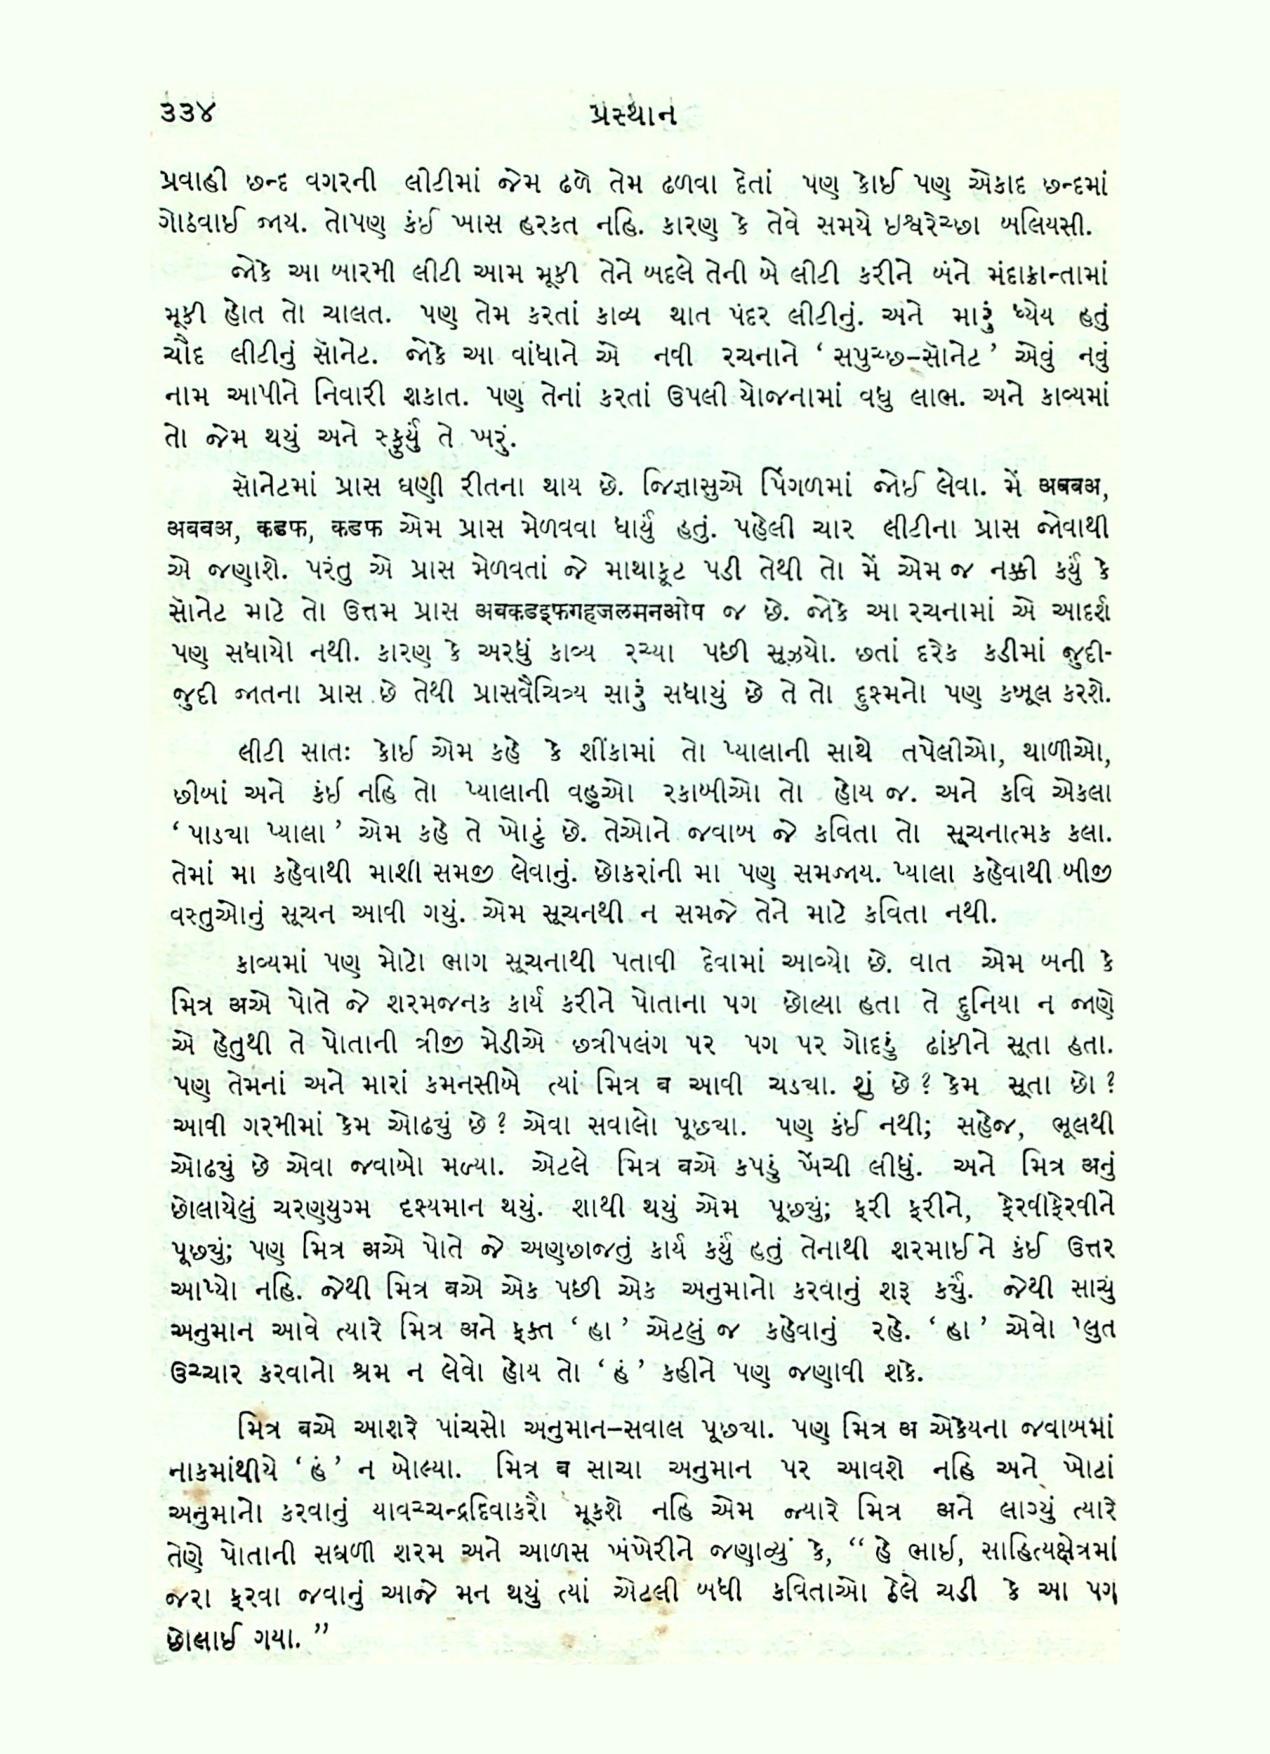 ૩૩૪
પ્રસ્થાન
પ્રવાહી છન્દ વગરની લીટીમાં જેમ ઢળે તેમ ઢળવા દેતાં પણ કોઈ પણ એકાદ છન્દમાં
ગોઠવાઈ જાય. તોપણ કંઈ ખાસ હરકત નહિ. કારણ કે તેવે સમયે ઇશ્વરેચ્છા બલિયસી.
જોકે આ બારમી લીટી આમ મૂકી તેને બદલે તેની બે લીટી કરીને બંને મંદાક્રાન્તામાં
મૂકી હોત તો ચાલત. પણ તેમ કરતાં કાવ્ય થાત પંદર લીટીનું. અને મારું ધ્યેય હતું
ચૌદ લીટીનું સૉનેટ. જોકે આ વાંધાને એ નવી રચનાને ‘ સપુચ્છ–સૉનેટ ’ એવું નવું
નામ આપીને નિવારી શકાત. પણ તેનાં કરતાં ઉપલી યોજનામાં વધુ લાભ. અને કાવ્યમાં
તો જેમ થયું અને સ્ફુર્યું તે ખરું.
સૉનેટમાં પ્રાસ ઘણી રીતના થાય છે. જિજ્ઞાસુએ પિંગળમાં જોઈ લેવા. મેં अबबअ,
अबबअ, कडफ, कडफ એમ પ્રાસ મેળવવા ધાર્યું હતું. પહેલી ચાર લીટીના પ્રાસ જોવાથી
એ જણાશે. પરંતુ એ પ્રાસ મેળવતાં જે માથાકૂટ પડી તેથી તો મેં એમ જ નક્કી કર્યું કે
સૉનેટ માટે તો ઉત્તમ પ્રાસ अबकडइफगहजलमनओप જ છે. જોકે આ રચનામાં એ આદર્શ
પણ સધાયો નથી. કારણ કે અરધું કાવ્ય રચ્યા પછી સૂઝયો. છતાં દરેક કડીમાં જુદી-
જુદી જાતના પ્રાસ છે તેથી પ્રાસવૈચિત્ર્ય સારું સધાયું છે તે તો દુશ્મનો પણ કબૂલ કરશે.
લીટી સાતઃ કોઈ એમ કહે કે શીંકામાં તો પ્યાલાની સાથે તપેલીઓ, થાળીઓ,
છીબાં અને કંઈ નહિ તો પ્યાલાની વહુઓ રકાબીઓ તો હોય જ. અને કવિ એકલા
‘ પાડ્યા પ્યાલા ’ એમ કહે તે ખોટું છે. તેઓને જવાબ જે કવિતા તો સૂચનાત્મક કલા.
તેમાં મા કહેવાથી માશી સમજી લેવાનું. છોકરાંની મા પણ સમજાય. પ્યાલા કહેવાથી બીજી
વસ્તુઓનું સૂચન આવી ગયું. એમ સૂચનથી ન સમજે તેને માટે કવિતા નથી.
કાવ્યમાં પણ મોટો ભાગ સૂચનાથી પતાવી દેવામાં આવ્યો છે. વાત એમ બની કે
મિત્ર अએ પોતે જે શરમજનક કાર્ય કરીને પોતાના પગ છોલ્યા હતા તે દુનિયા ન જાણે
એ હેતુથી તે પોતાની ત્રીજી મેડીએ છત્રીપલંગ પર પગ પર ગોદડું ઢાંકીને સૂતા હતા.
પણ તેમનાં અને મારાં કમનસીબે ત્યાં મિત્ર ब આવી ચડ્યા. શું છે? કેમ સૂતા છો?
આવી ગરમીમાં કેમ ઓઢ્યું છે? એવા સવાલો પૂછ્યા. પણ કંઈ નથી; સહેજ, ભૂલથી
ઓઢ્યું છે એવા જવાબો મળ્યા. એટલે મિત્ર बએ કપડું ખેંચી લીધું. અને મિત્ર अનું
છોલાયેલું ચરણયુગ્મ દશ્યમાન થયું. શાથી થયું એમ પૂછ્યું; ફરી ફરીને, ફેરવીફેરવીને
પૂછ્યું; પણ મિત્ર अએ પોતે જે અણછાજતું કાર્ય કર્યું હતું તેનાથી શરમાઈને કંઈ ઉત્તર
આપ્યો નહિ. જેથી મિત્ર बએ એક પછી એક અનુમાનો કરવાનું શરૂ કર્યું. જેથી સાચું
અનુમાન આવે ત્યારે મિત્ર अને ફક્ત ‘ હા ’ એટલું જ કહેવાનું રહે. ‘ હા ’ એવો પ્લુત
ઉચ્ચાર કરવાનો શ્રમ ન લેવો હોય તો ‘ હં ’ કહીને પણ જણાવી શકે.
મિત્ર बએ આશરે પાંચસો અનુમાન–સવાલ પૂછ્યા. પણ મિત્ર अ એકેયના જવાબમાં
નાકમાંથીયે ‘ હં ’ ન બોલ્યા. મિત્ર ब સાચા અનુમાન પર આવશે નહિ અને ખોટાં
અનુમાનો કરવાનું યાવચ્ચન્દ્રદિવાકરૌ મૂકશે નહિ એમ જ્યારે મિત્ર अને લાગ્યું ત્યારે
તેણે પોતાની સઘળી શરમ અને આળસ ખંખેરીને જણાવ્યું કે, “ હે ભાઈ, સાહિત્યક્ષેત્રમાં
જરા ફરવા જવાનું આજે મન થયું ત્યાં એટલી બધી કવિતાઓ ઠેલે ચડી કે આ પગ
છોલાઈ ગયા. ”